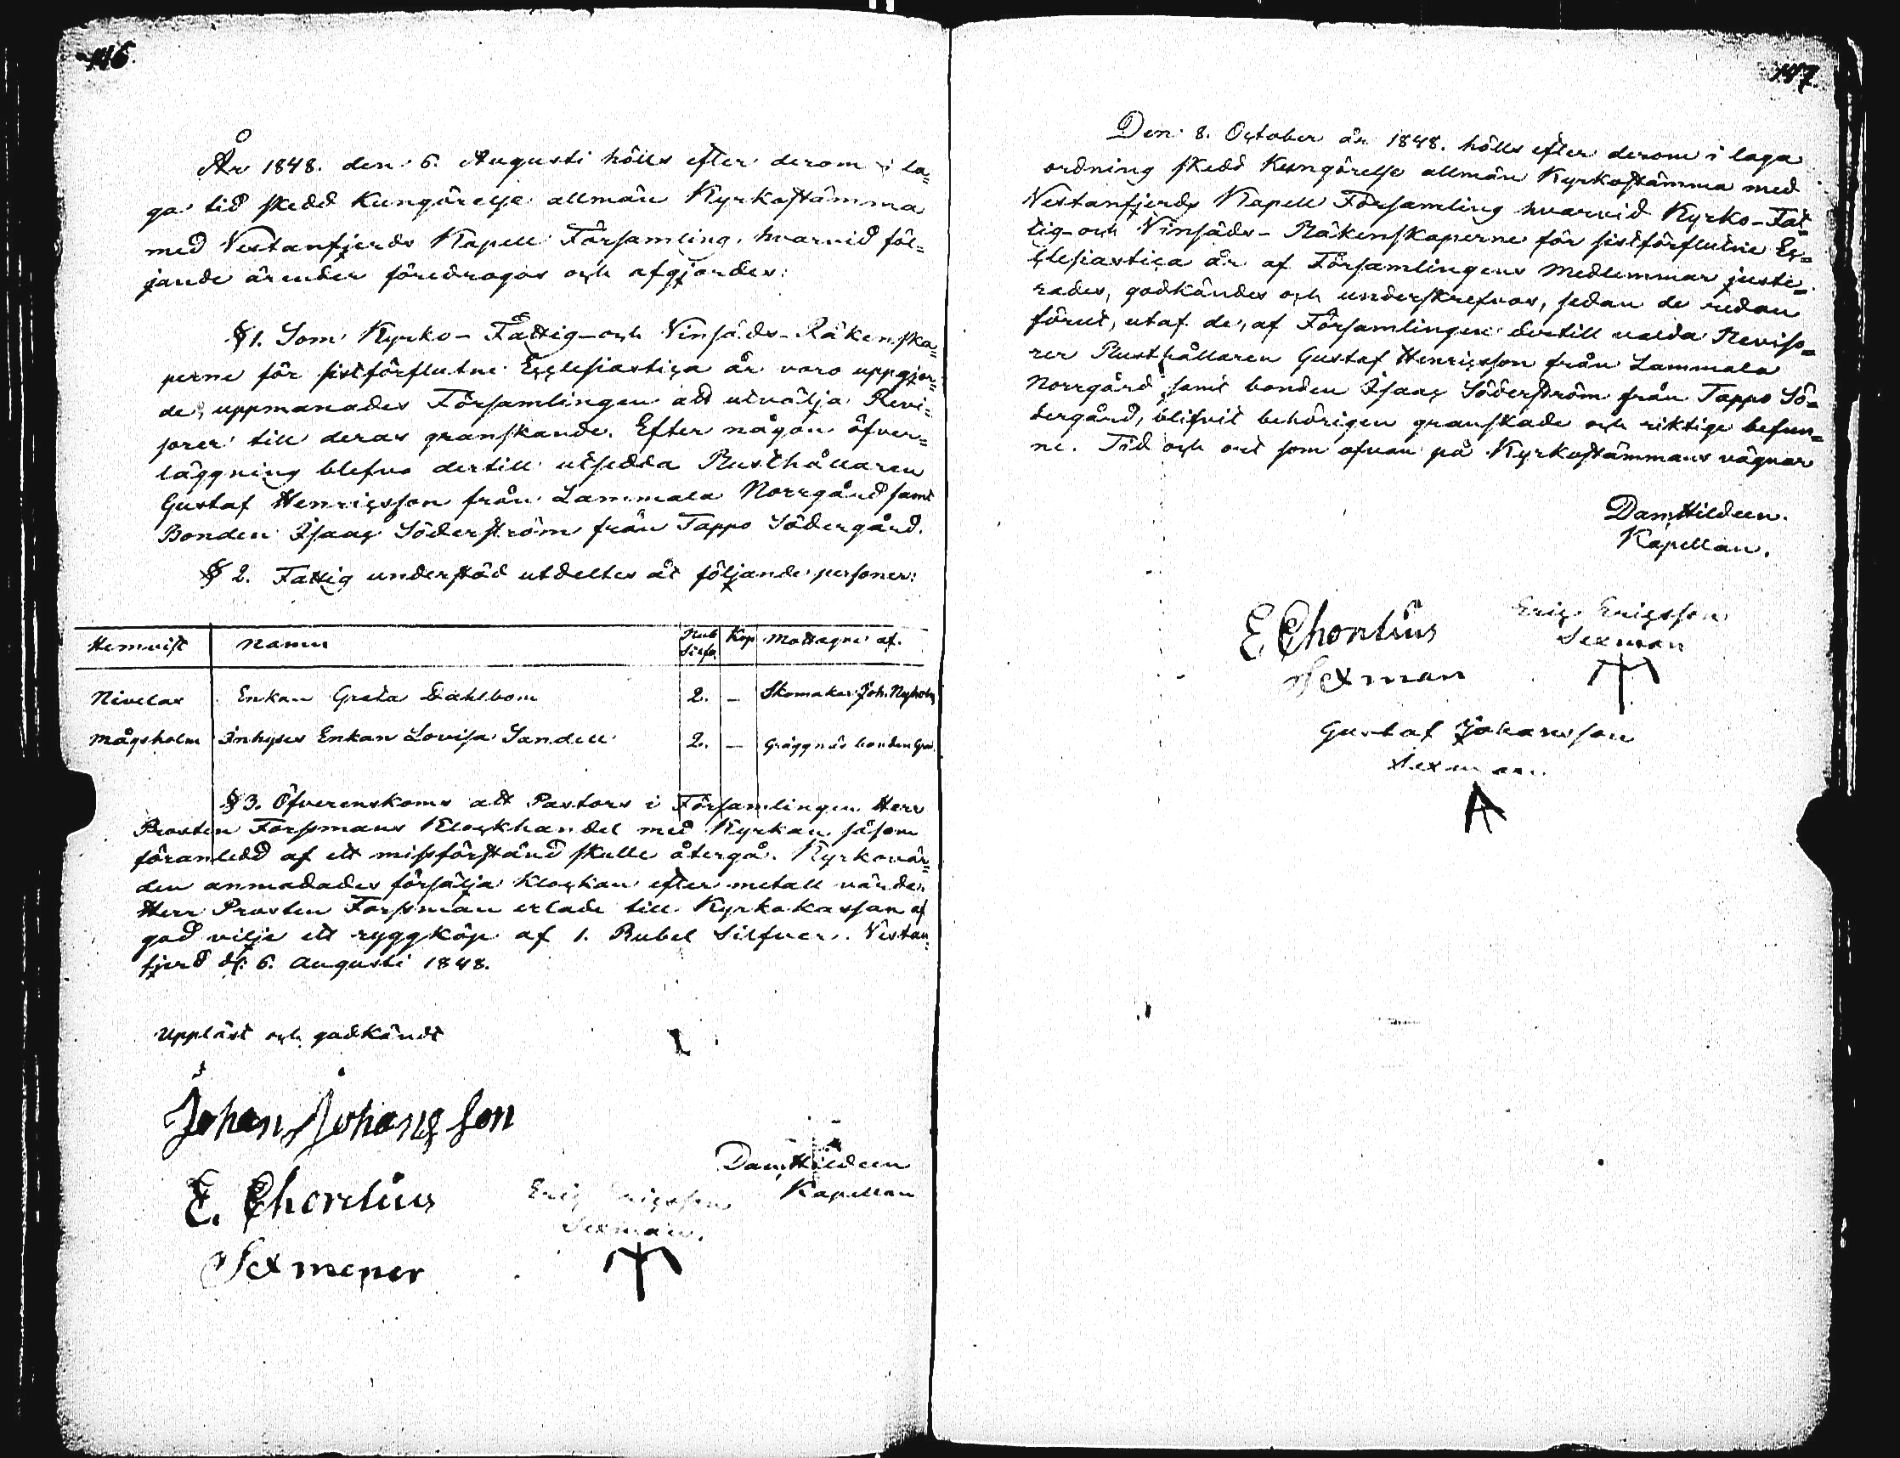 146.
År 1848. den 6. Augusti hölls efter derom i la=
ga tid skedd Kungörelse allmän Kyrkostämma
med Vestanfjerds Kapell Församling, hvarvid föl=
jande ärender föredrogos och afgjordes:
§ 1. Som Kyrko- Fattig- och Vinsäds- Räkenska=
perne för sistförflutne Ecclesiastica år voro uppgjor=
de, uppmanades Församlingen att utvälja Revi=
sorer till deras granskande. Efter någon öfver=
läggning blefvo dertill utsedda Rusthållaren
Gustaf Henricsson från Lammala Norrgård samt
Bonden Isaac Söderström från Tappo Södergård.
§ 2. Fattig understöd utdeltes åt följande personer:
Hemvist Namn Rub Silfv. Kop Mottagne af.
Nivelax Enkan Greta Dahlbom 2. — Skomakar Joh. Nyholm
Mågsholm Inhyses Enkan Lovisa Sandell 2. — Gräggnäs bonden
§ 3. Öfverenskoms att Pastors i Församlingen Herr
Prosten Forssmans Klockhandel med Kyrkan, såsom
föranledd af ett missförstånd skulle återgå. Kyrkovär=
den anmodades försälja Klockan efter metall värde.
Herr Prosten Forssman erlade till Kyrkokassan af
god vilje ett ryggköp af 1. Rubel Silfver. Vestan=
fjerd d. 6. Augusti 1848.
Uppläst och godkändt
Johan Johansson
Dan. Hildeen
Kapellan
E. Chorelius
Eric Ericsson
Sexman.
Sexmener
147.
Den 8. October år 1848. hölls efter derom i laga
ordning skedd Kungörelse allmän Kyrkostämma med
Vestanfjerds Kapell Församling hvarvid Kyrko- Fat=
tig- och Vinsäds- Räkenskaperne för sistförflutne Ec=
clesiastica år af Församlingens Medlemmar juste=
rades, godkändes och underskrefvos, sedan de redan
förut, utaf de, af Församlingen dertill valda Reviso=
rer Rusthållaren Gustaf Henricsson från Lammala
Norrgård samt bonden Isaac Söderström från Tappo Sö=
dergård, blifvit behörigen granskade och riktige befun=
ne. Tid och ort som ofvan på Kyrkostämmans vägnar
Dan. Hildeen.
Kapellan.
E Chorelius
Sexman
Eric Ericsson
Sexman
Gustaf Johansson
Sexman.